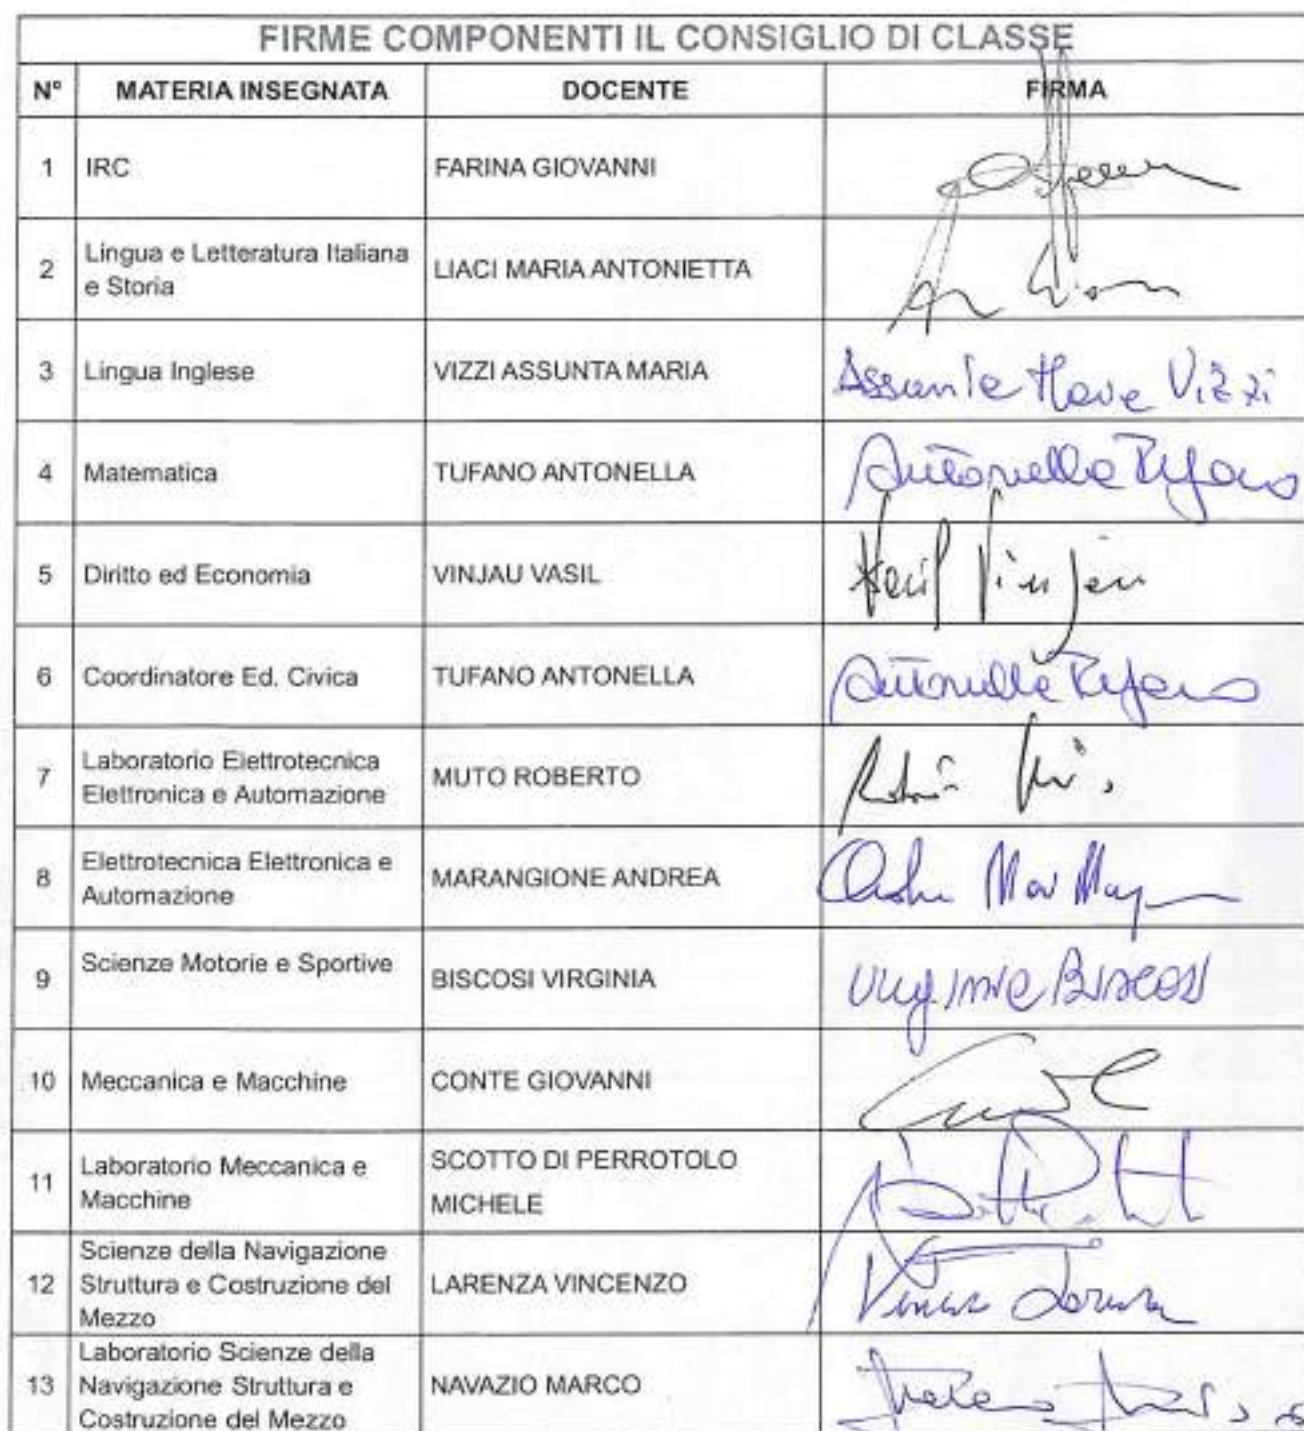 FIRME COMPONENTI IL CONSIGLIO DI CLASSE
N° MATERIA INSEGNATA DOCENTE FIRMA
1 IRC FARINA GIOVANNI
2 Lingua e Letteratura Italiana e Storia LIACI MARIA ANTONIETTA
3 Lingua Inglese VIZZI ASSUNTA MARIA Assunta Maria Vizzi
4 Matematica TUFANO ANTONELLA Antonella Tufano
5 Diritto ed Economia VINJAU VASIL Vasil Vinjau
6 Coordinatore Ed. Civica TUFANO ANTONELLA Antonella Tufano
7 Laboratorio Elettrotecnica Elettronica e Automazione MUTO ROBERTO
8 Elettrotecnica Elettronica e Automazione MARANGIONE ANDREA
9 Scienze Motorie e Sportive BISCOSI VIRGINIA Virginia Biscosi
10 Meccanica e Macchine CONTE GIOVANNI
11 Laboratorio Meccanica e Macchine SCOTTO DI PERROTOLO MICHELE
12 Scienze della Navigazione Struttura e Costruzione del Mezzo LARENZA VINCENZO
13 Laboratorio Scienze della Navigazione Struttura e Costruzione del Mezzo NAVAZIO MARCO